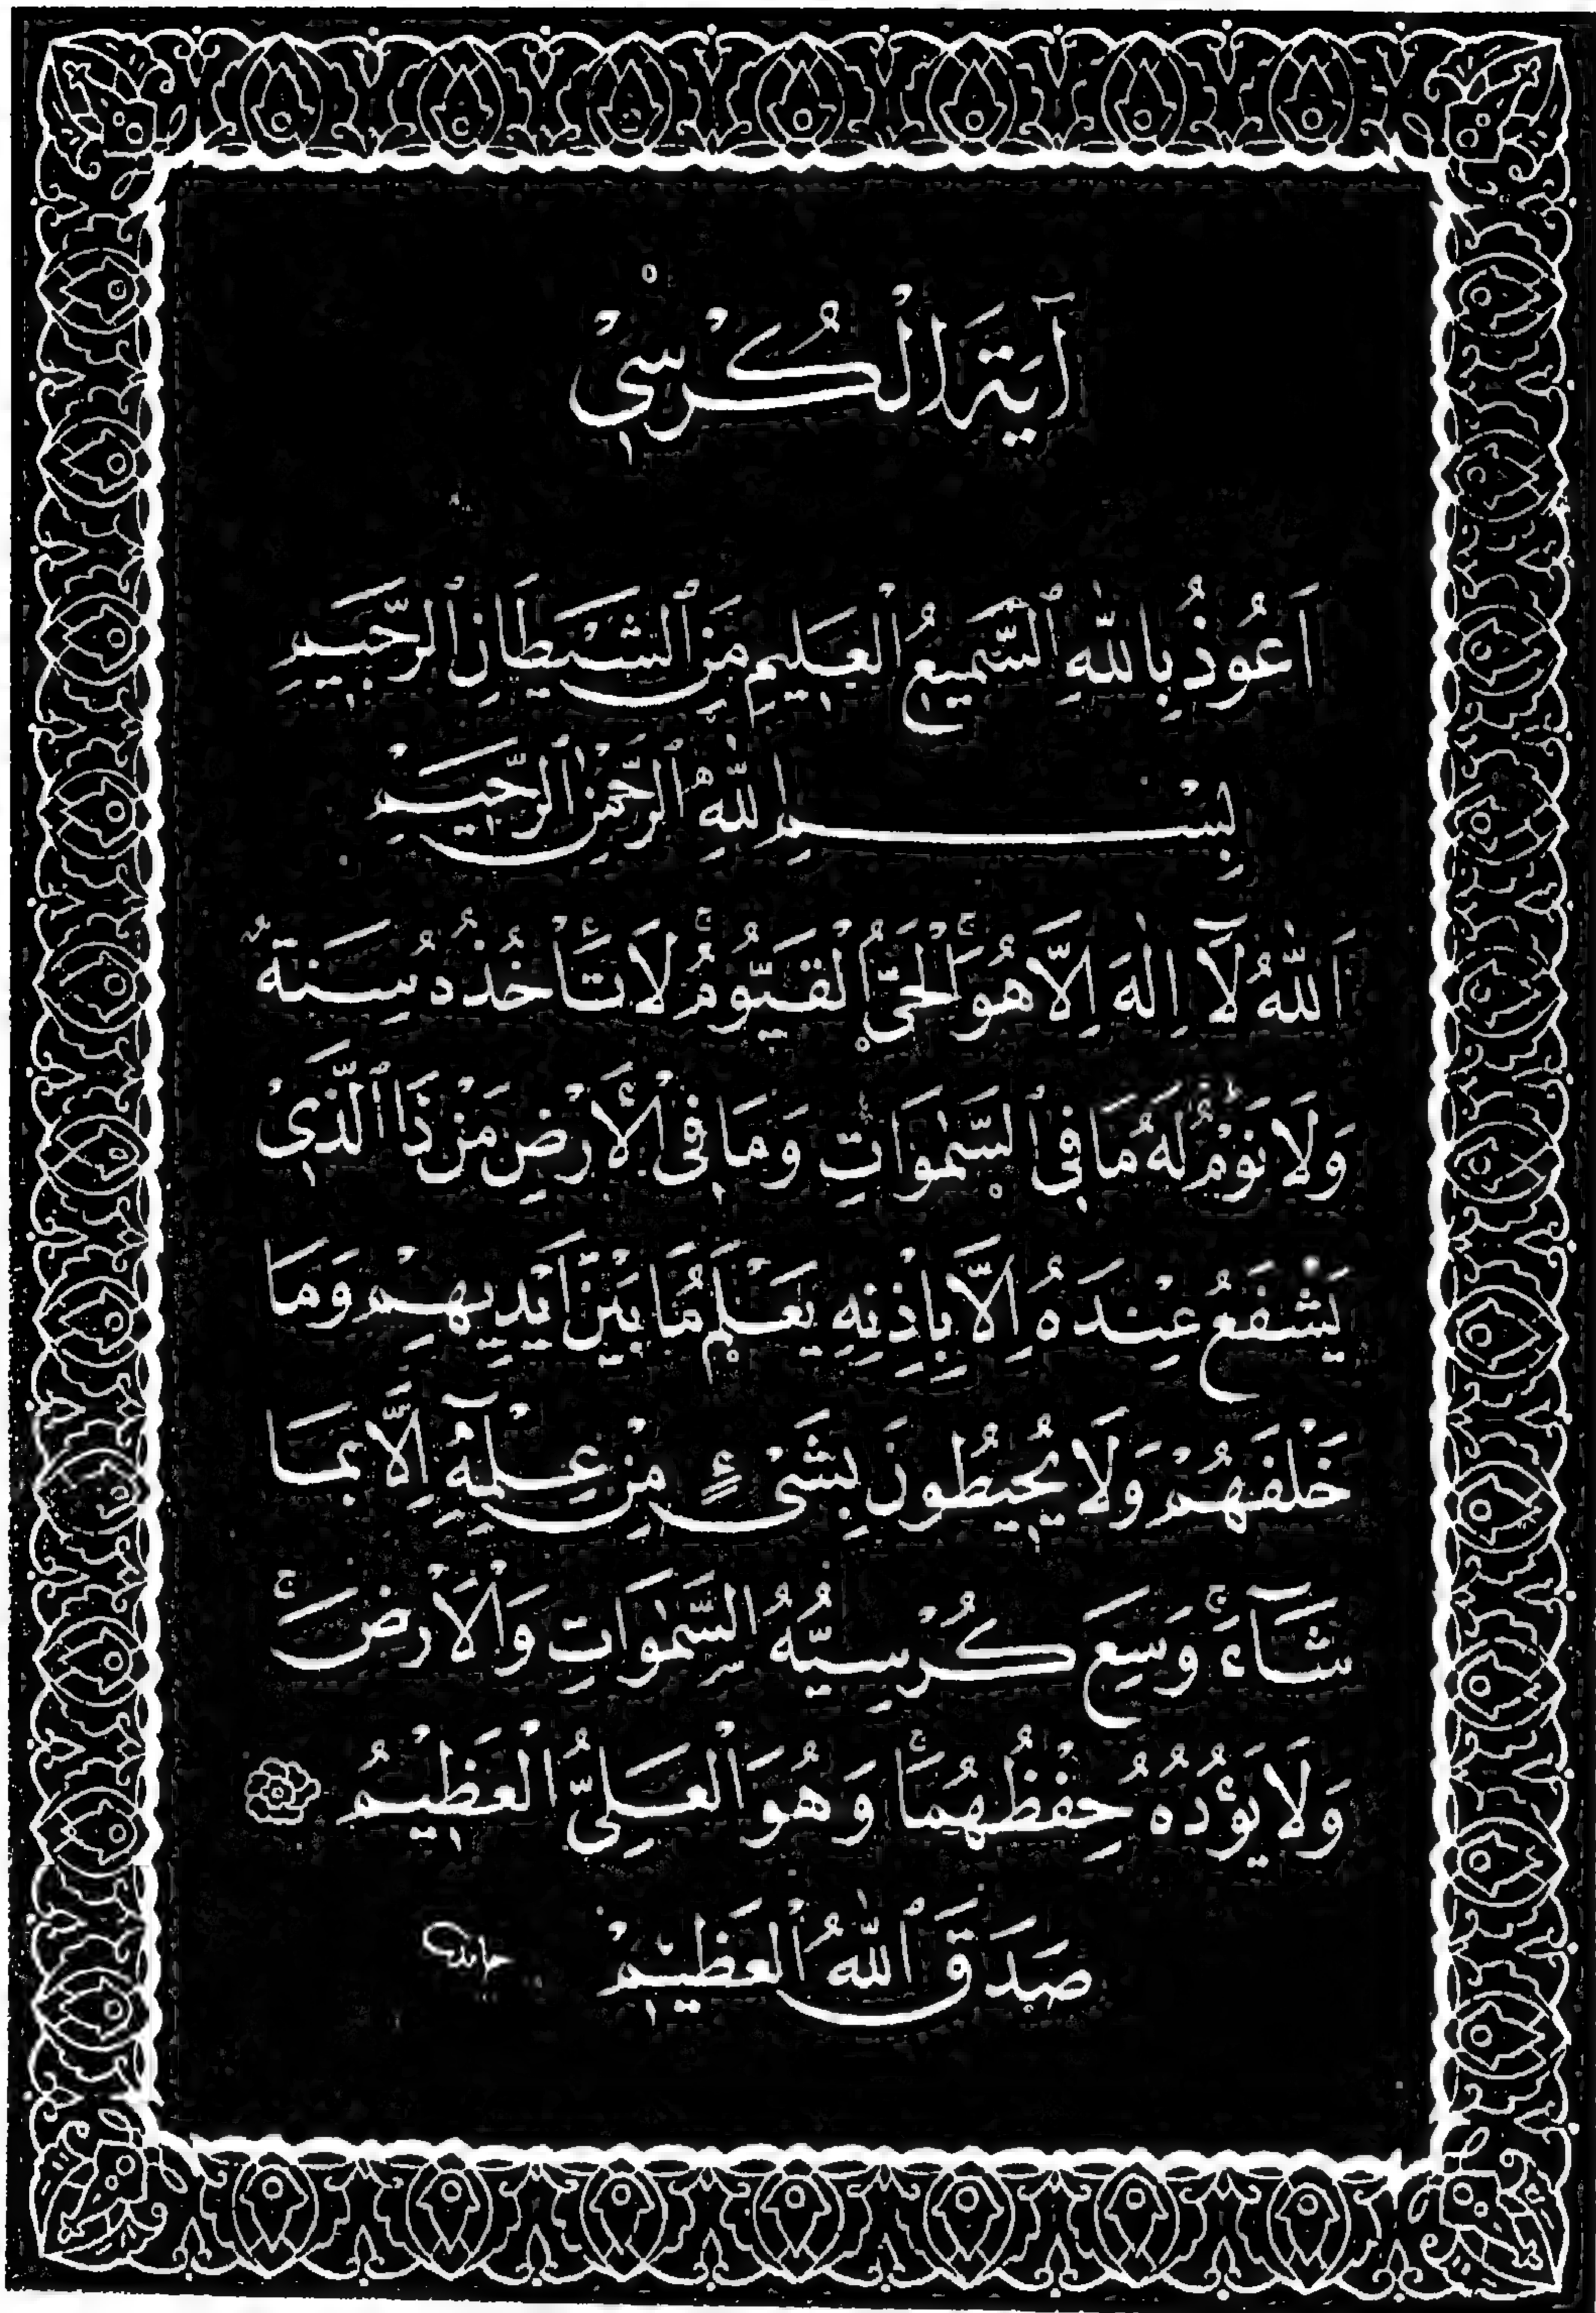 آيَةَ الْكُرْسِيْ
اَعُوذُ بِاللّٰهِ ٱلسَّمِيعُ ٱلْعَلِيمِ مِنَ ٱلشَّيْطَانِ ٱلرَّجِيمِ
بِسْمِ اللّٰهِ ٱلرَّحْمٰنِ ٱلرَّحِيمْ
اَللّٰهُ لَآ اِلٰهَ اِلَّا هُوَۚ اَلْحَىُّ الْقَيُّومُۚ لَا تَأْخُذُهُ سِنَةٌ
وَلَا نَوْمٌ لَهُ مَا فِى ٱلسَّمٰوَاتِ وَمَا فِى ٱلْأَرْضِ مَنْ ذَا الَّذِىْ
يَشْفَعُ عِنْدَهُ اِلَّا بِاِذْنِهِ يَعْلَمُ مَا بَيْنَ اَيْدِيهِمْ وَمَا
خَلْفَهُمْ وَلَا يُحِيطُونَ بِشَىْءٍ مِنْ عِلْمِهٓ اِلَّا بِمَا
شَآءَۚ وَسِعَ كُرْسِيُّهُ السَّمٰوَاتِ وَالْاَرْضَۚ
وَلَا يَؤُدُهُ حِفْظُهُمَاۚ وَهُوَ الْعَلِىُّ الْعَظِيْمُ
صَدَقَ ٱللّٰهُ ٱلْعَظِيمْ